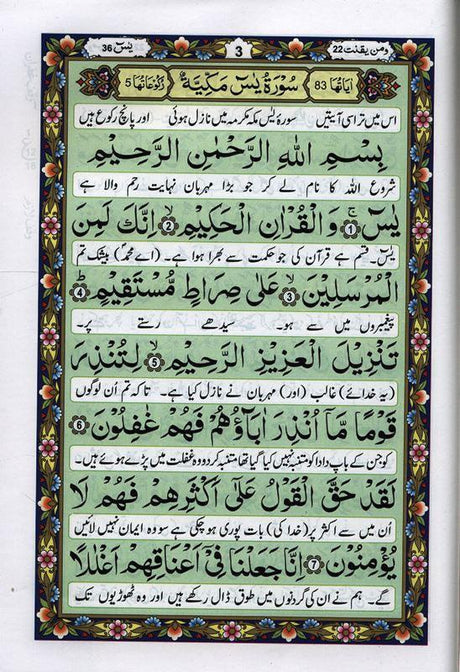 ومن یقنت 22
3
یٰسٓ 36
اٰیَاتُهَا 83
سُوْرَةُ یٰسٓ مَکِّیَّةٌ
رُکُوْعَاتُهَا 5
اس میں تراسی آیتیں سورۂ یٰسٓ مکہ مکرمہ میں نازل ہوئی اور پانچ رکوع ہیں
بِسْمِ اللّٰهِ الرَّحْمٰنِ الرَّحِیْمِ
شروع اللہ کا نام لے کر جو بڑا مہربان نہایت رحم والا ہے
یٰسٓ ۚ 1 وَ الْقُرْاٰنِ الْحَکِیْمِ ۙ 2 اِنَّكَ لَمِنَ
یٰسٓ۔ قسم ہے قرآن کی جو حکمت سے بھرا ہوا ہے۔ (اے محمدؐ) بیشک تم
الْمُرْسَلِیْنَ ۙ 3 عَلٰی صِرَاطٍ مُّسْتَقِیْمٍ ؕ 4
پیغمبروں میں سے ہو۔ سیدھے رستے پر۔
تَنْزِیْلَ الْعَزِیْزِ الرَّحِیْمِ ۙ 5 لِتُنْذِرَ
(یہ خدائے) غالب (اور) مہربان نے نازل کیا ہے۔ تاکہ تم اُن لوگوں
قَوْمًا مَّاۤ اُنْذِرَ اٰبَآؤُهُمْ فَهُمْ غٰفِلُوْنَ 6
کو جن کے باپ دادا کو متنبہ نہیں کیا گیا تھا متنبہ کر دو وہ غفلت میں پڑے ہوئے ہیں۔
لَقَدْ حَقَّ الْقَوْلُ عَلٰۤی اَکْثَرِهِمْ فَهُمْ لَا
اُن میں سے اکثر پر (خدا کی) بات پوری ہو چکی ہے سو وہ ایمان نہیں لائیں
یُؤْمِنُوْنَ 7 اِنَّا جَعَلْنَا فِیْۤ اَعْنَاقِهِمْ اَغْلٰلًا
گے۔ ہم نے ان کی گردنوں میں طوق ڈال رکھے ہیں اور وہ ٹھوڑیوں تک